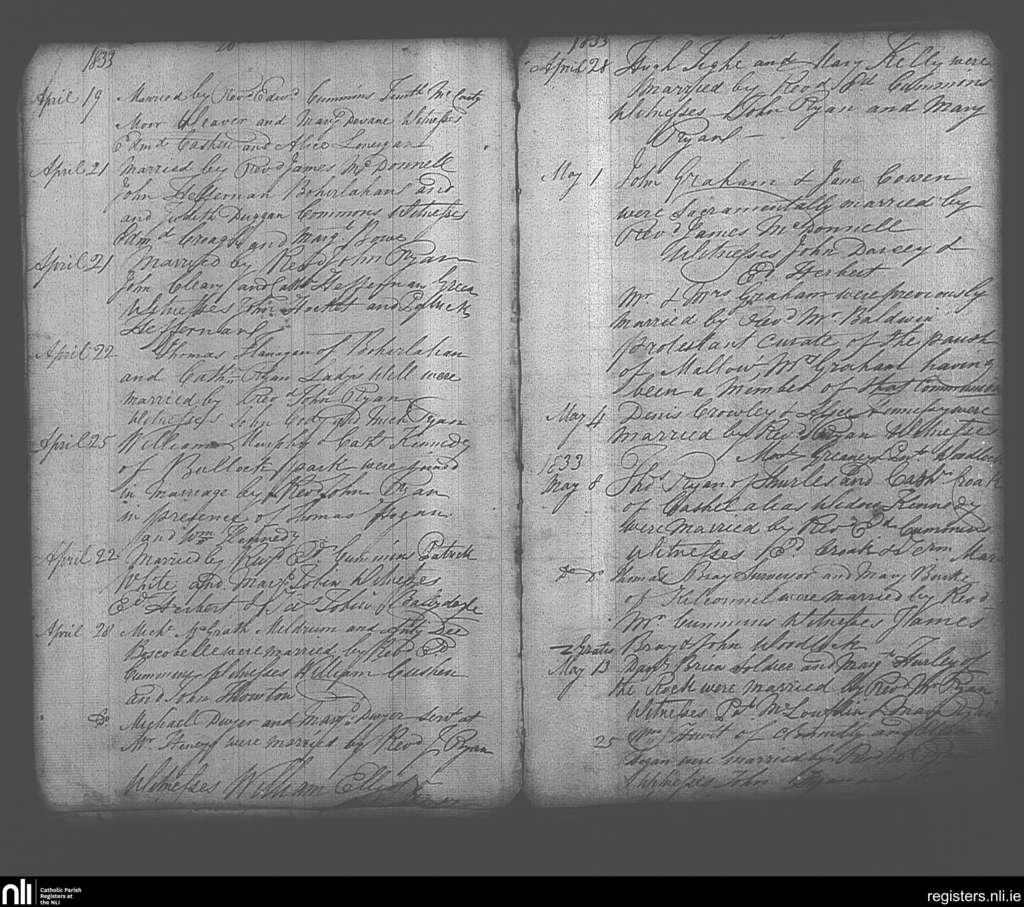 1833
April 19 Married by Revd Edwd Cummins
Moor Cleaver and Margt Devane Witnesses
Edmd Cashin and Alice Lonergan
April 21 Married by Revd James McDonnell
John Heffernan Boherlahan and
and Judith Duggan Commons Witnesses
Edmd Creagh and Margt Bowe
April 21 Married by Revd John Ryan
John Cleary and Cathn Heffernan Green
Witnesses and Patrick
Heffernan
April 22 Thomas Flanagan of Boherlahan
and Cathn Ryan Ladys Well were
married by Revd John Ryan
Witnesses John and Mich Ryan
April 25 William Murphy & Cathn Kennedy
of Bullock park were joined
in marriage by Revd John Ryan
in presence of Thomas Fagan
and Wm Kennedy
April 22 Married by Revd Ed Cummins Patrick
White and Margt Tobin Witnesses
Ed Herbert & Jas Tobin
April 28 Michl McGrath Meldrum and
Boscobelle were married by Revd Ed
Cummins Witnesses William Cushen
and John
Do Michael Dwyer and Margt Dwyer servt at
Mr were married by Revd J Ryan
Witnesses William
1833
April 28 Hugh Tighe and Mary Kelly were
Married by Revd Ed Cummins
Witnesses John Ryan and Mary
Ryan
May 1 John Graham & Jane Cowen
were Sacramentally married by
Revd James McDonnell
Witnesses John Darcey &
Ed Herbert
Mr & Mrs Graham were previously
married by Revd Mr Baldwin
Protestant curate of the parish
of Mallow, Mrs Graham having
been a member of that Communion
May 4 Denis Crowley & were
married by Revd Ryan Witnesses
1833
May 8 Thos Ryan of Thurles and Cathn Creak
of Cashel alias Widow Kennedy
were married by Revd Ed Cummins
Witnesses Ed Creak &
Do Do Thomas Bray Surveyor and Mary Bourke
of Kilconnel were married by Revd
Mr Cummins Witnesses James
Bray & John Woodlock
Gratis
May 13 Danl Brien soldier and Margt Hurley of
the Rock were married by Revd Mr Ryan
Witnesses Pat McLoughlin & Mary
25 of and
Ryan were married by Revd
Witnesses John
nli
Catholic Parish
Registers at
the NLI
registers.nli.ie